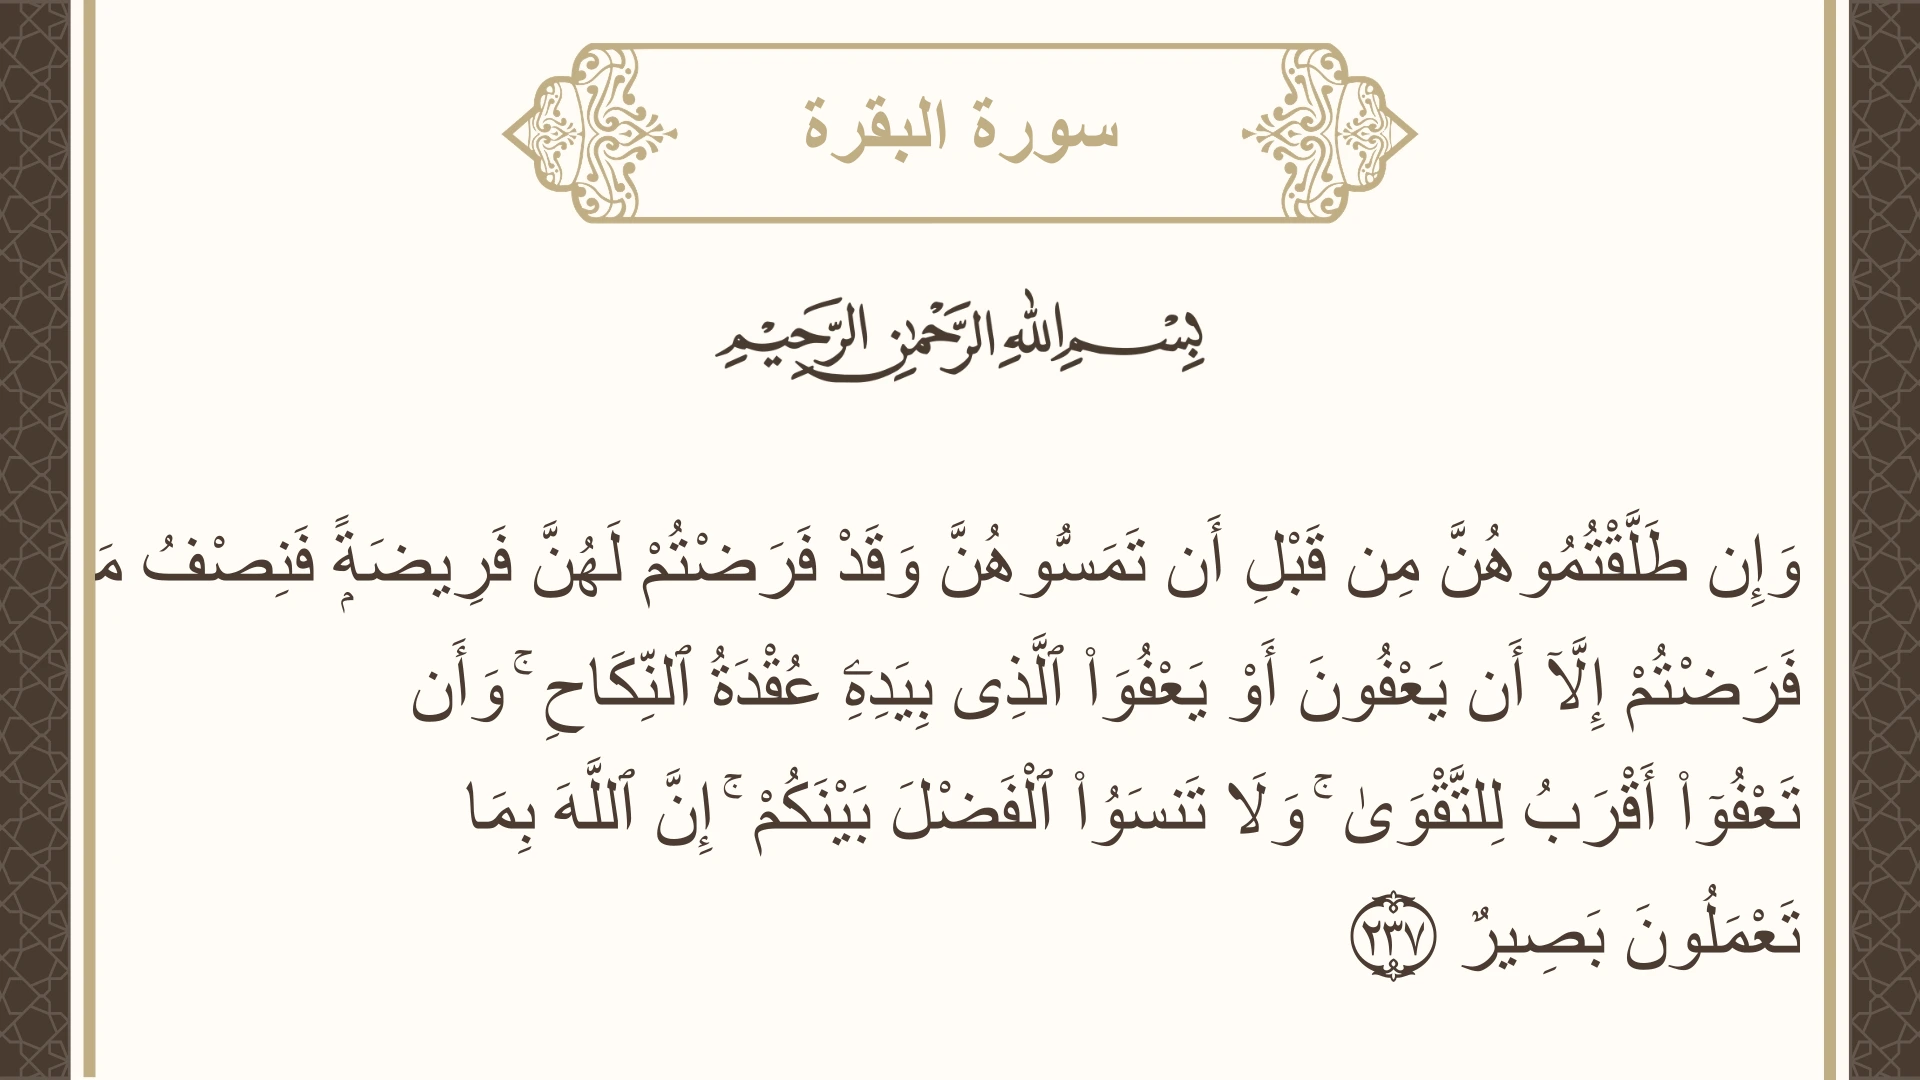 سورة البقرة
بِسْمِ اللهِ الرَّحْمٰنِ الرَّحِيْمِ
وَإِن طَلَّقْتُمُوهُنَّ مِن قَبْلِ أَن تَمَسُّوهُنَّ وَقَدْ فَرَضْتُمْ لَهُنَّ فَرِيضَةًۭ فَنِصْفُ
فَرَضْتُمْ إِلَّآ أَن يَعْفُونَ أَوْ يَعْفُوَا۟ ٱلَّذِى بِيَدِهِۦ عُقْدَةُ ٱلنِّكَاحِ ۚ وَأَن
تَعْفُوٓا۟ أَقْرَبُ لِلتَّقْوَىٰ ۚ وَلَا تَنسَوُا۟ ٱلْفَضْلَ بَيْنَكُمْ ۚ إِنَّ ٱللَّهَ بِمَا
تَعْمَلُونَ بَصِيرٌ ٢٣٧